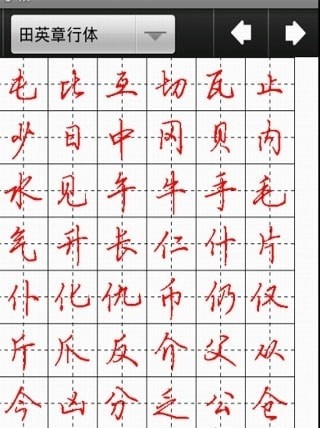 田英章行体
屯比互切瓦止
少日中冈贝内
水见午牛手毛
气升长仁什片
仆化仇币仍仅
斤爪反介父从
今凶分乏公仓